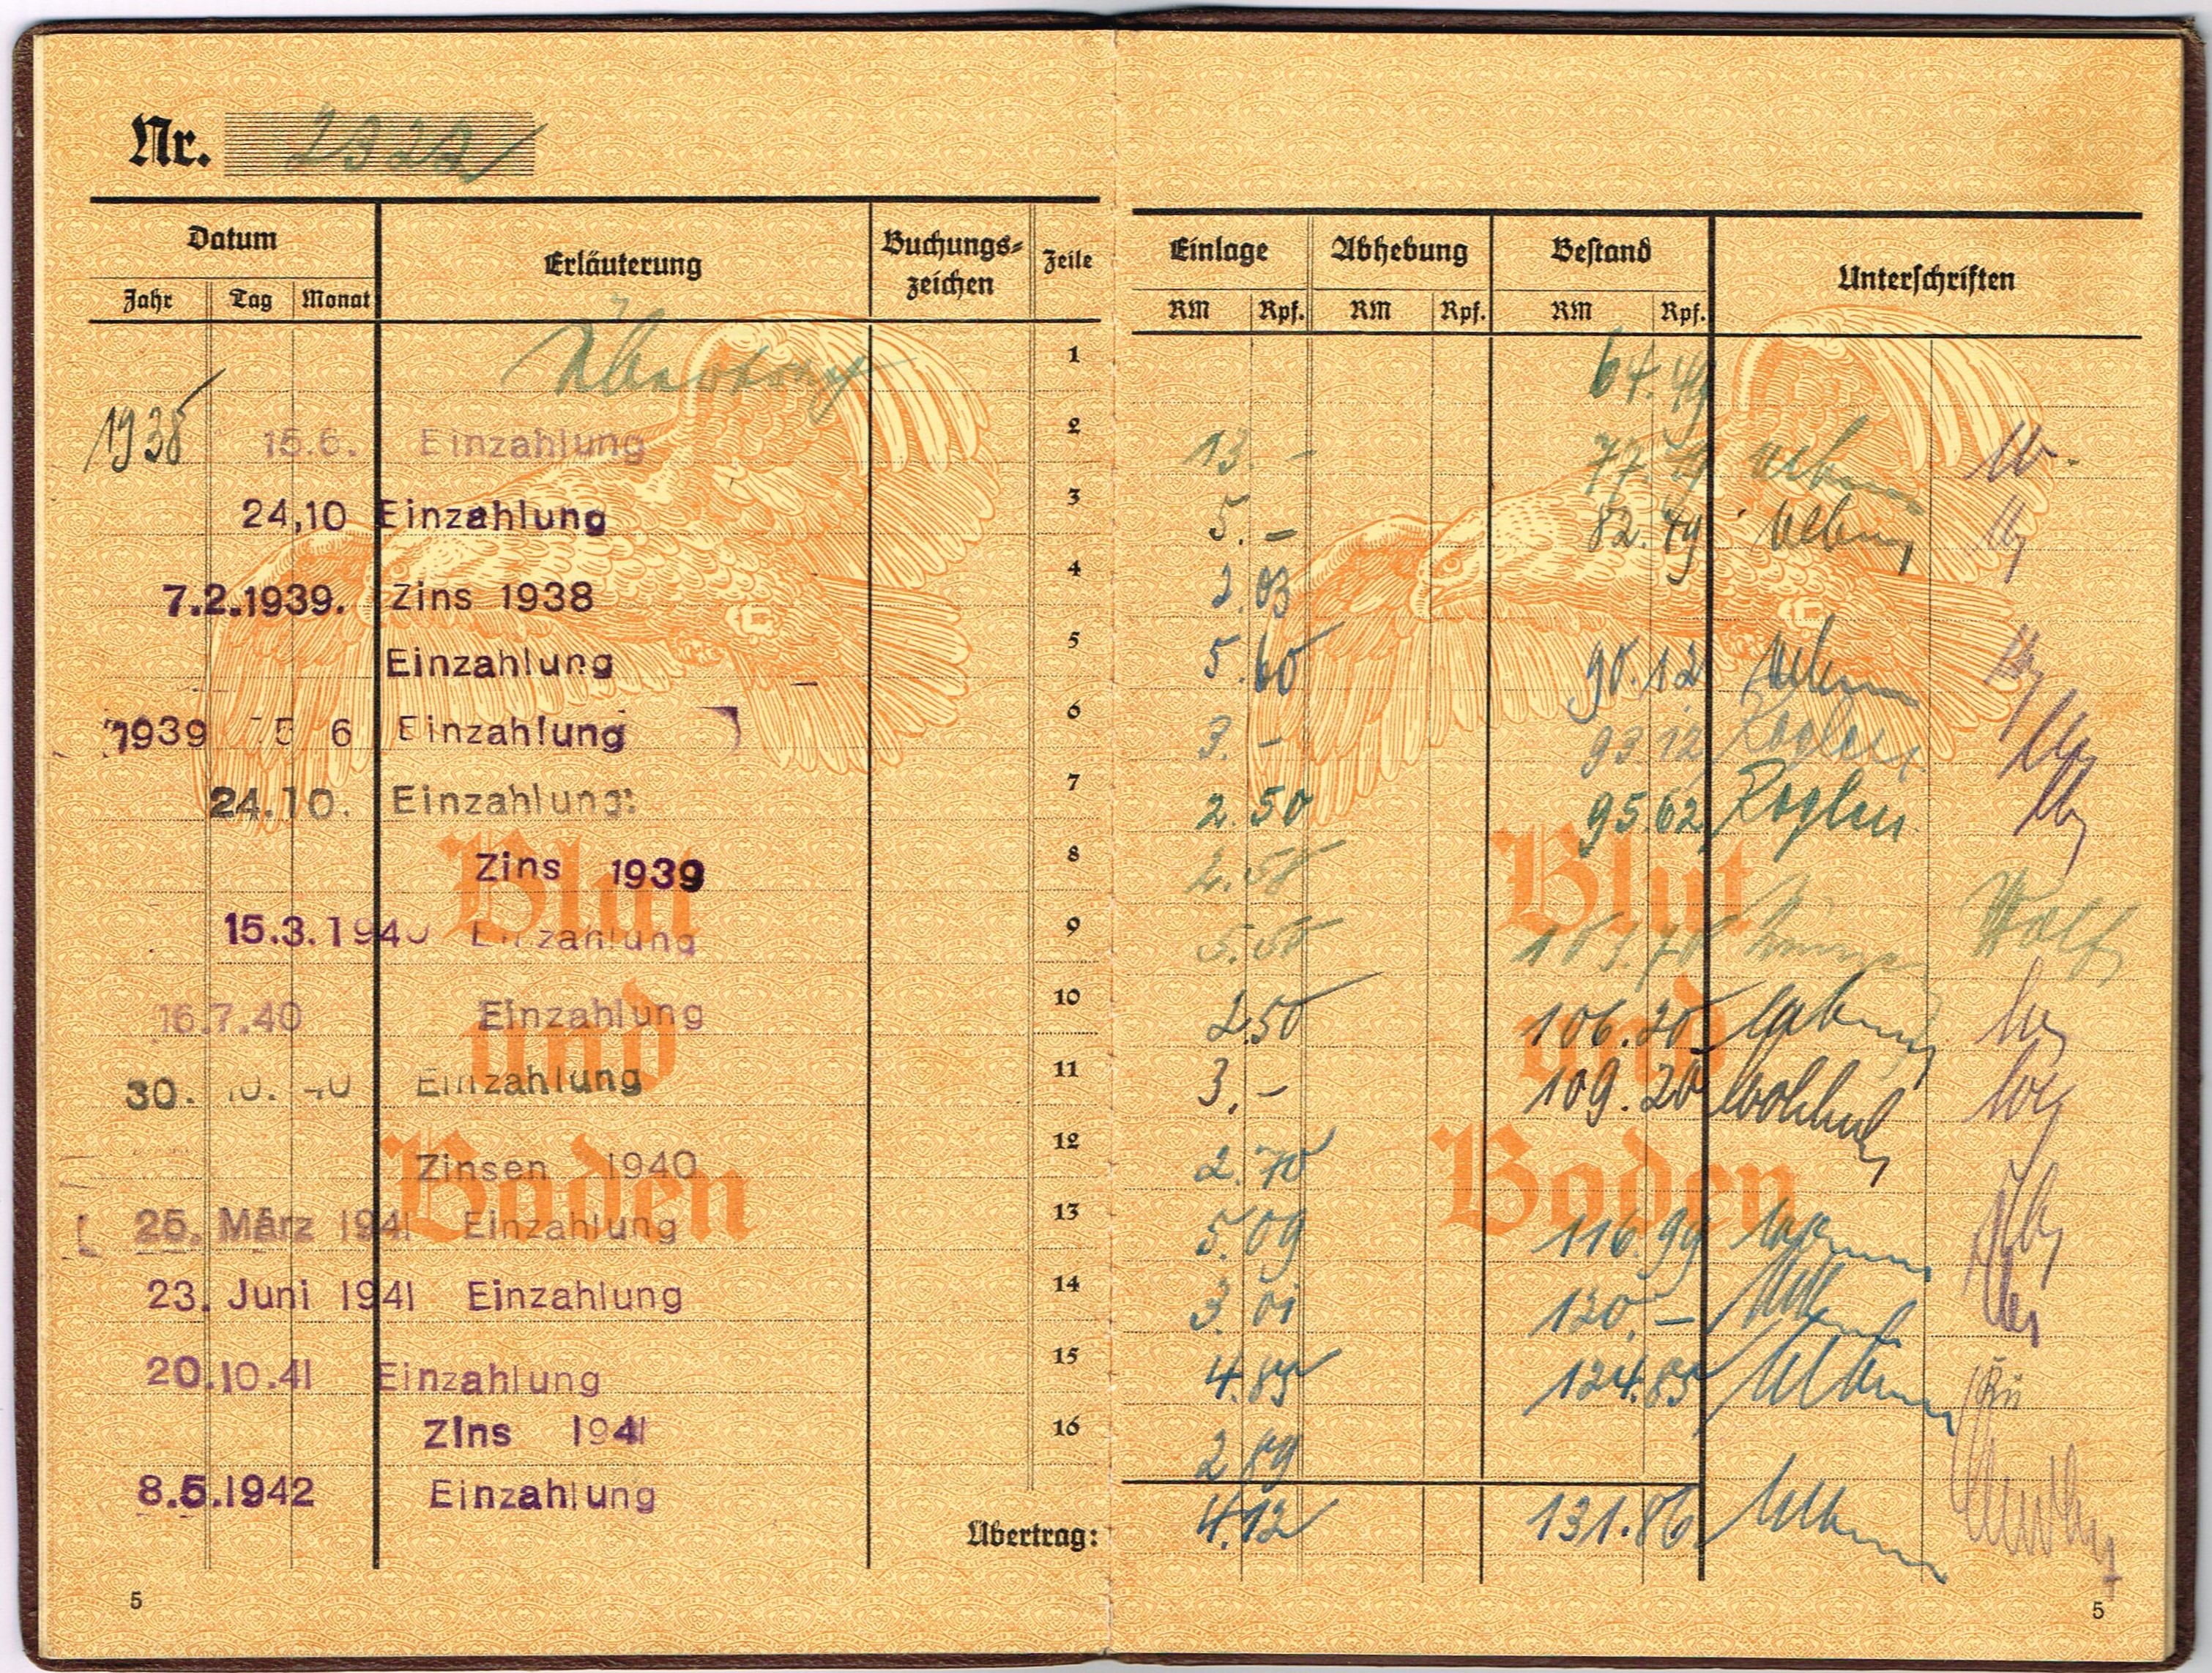 Nr. 2322
Datum Erläuterung Buchungs-zeichen Zeile Einlage Abhebung Bestand Unterschriften
Jahr Tag Monat RM Rpf. RM Rpf. RM Rpf.
Übertrag 1 64.49
1938 15.6. Einzahlung 2 13.- 77.49
24,10 Einzahlung 3 5.- 82.49
7.2.1939. Zins 1938 4 2.03
Einzahlung 5 5.60 90.12
1939 15 6 Einzahlung 6 3.- 93.12
24.10. Einzahlung: 7 2.50 95.62
Zins 1939 8 2.58
15.3.1940 Einzahlung 9 5.50 103.70 Wolf
16.7.40 Einzahlung 10 2.50 106.20
30. 10. 40 Einzahlung 11 3.- 109.20
Zinsen 1940 12 2.70
25. März 1941 Einzahlung 13 5.09 116.99
23. Juni 1941 Einzahlung 14 3.01 120.-
20.10.41 Einzahlung 15 4.85 124.85
Zins 1941 16 2.89
8.5.1942 Einzahlung 4.12 131.86
Übertrag:
Blut
und
Boden
Blut
und
Boden
5 5